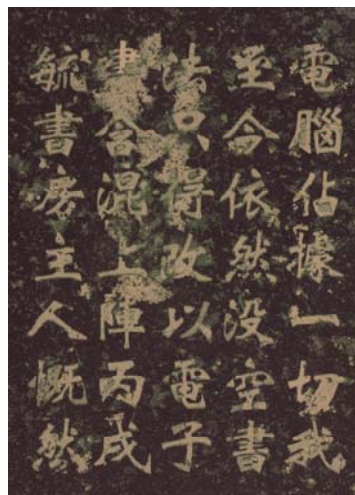 電腦佔據一切我
至今依然没空書
法只得改以電子
書含混上陣丙戌
毓書房主人慨然